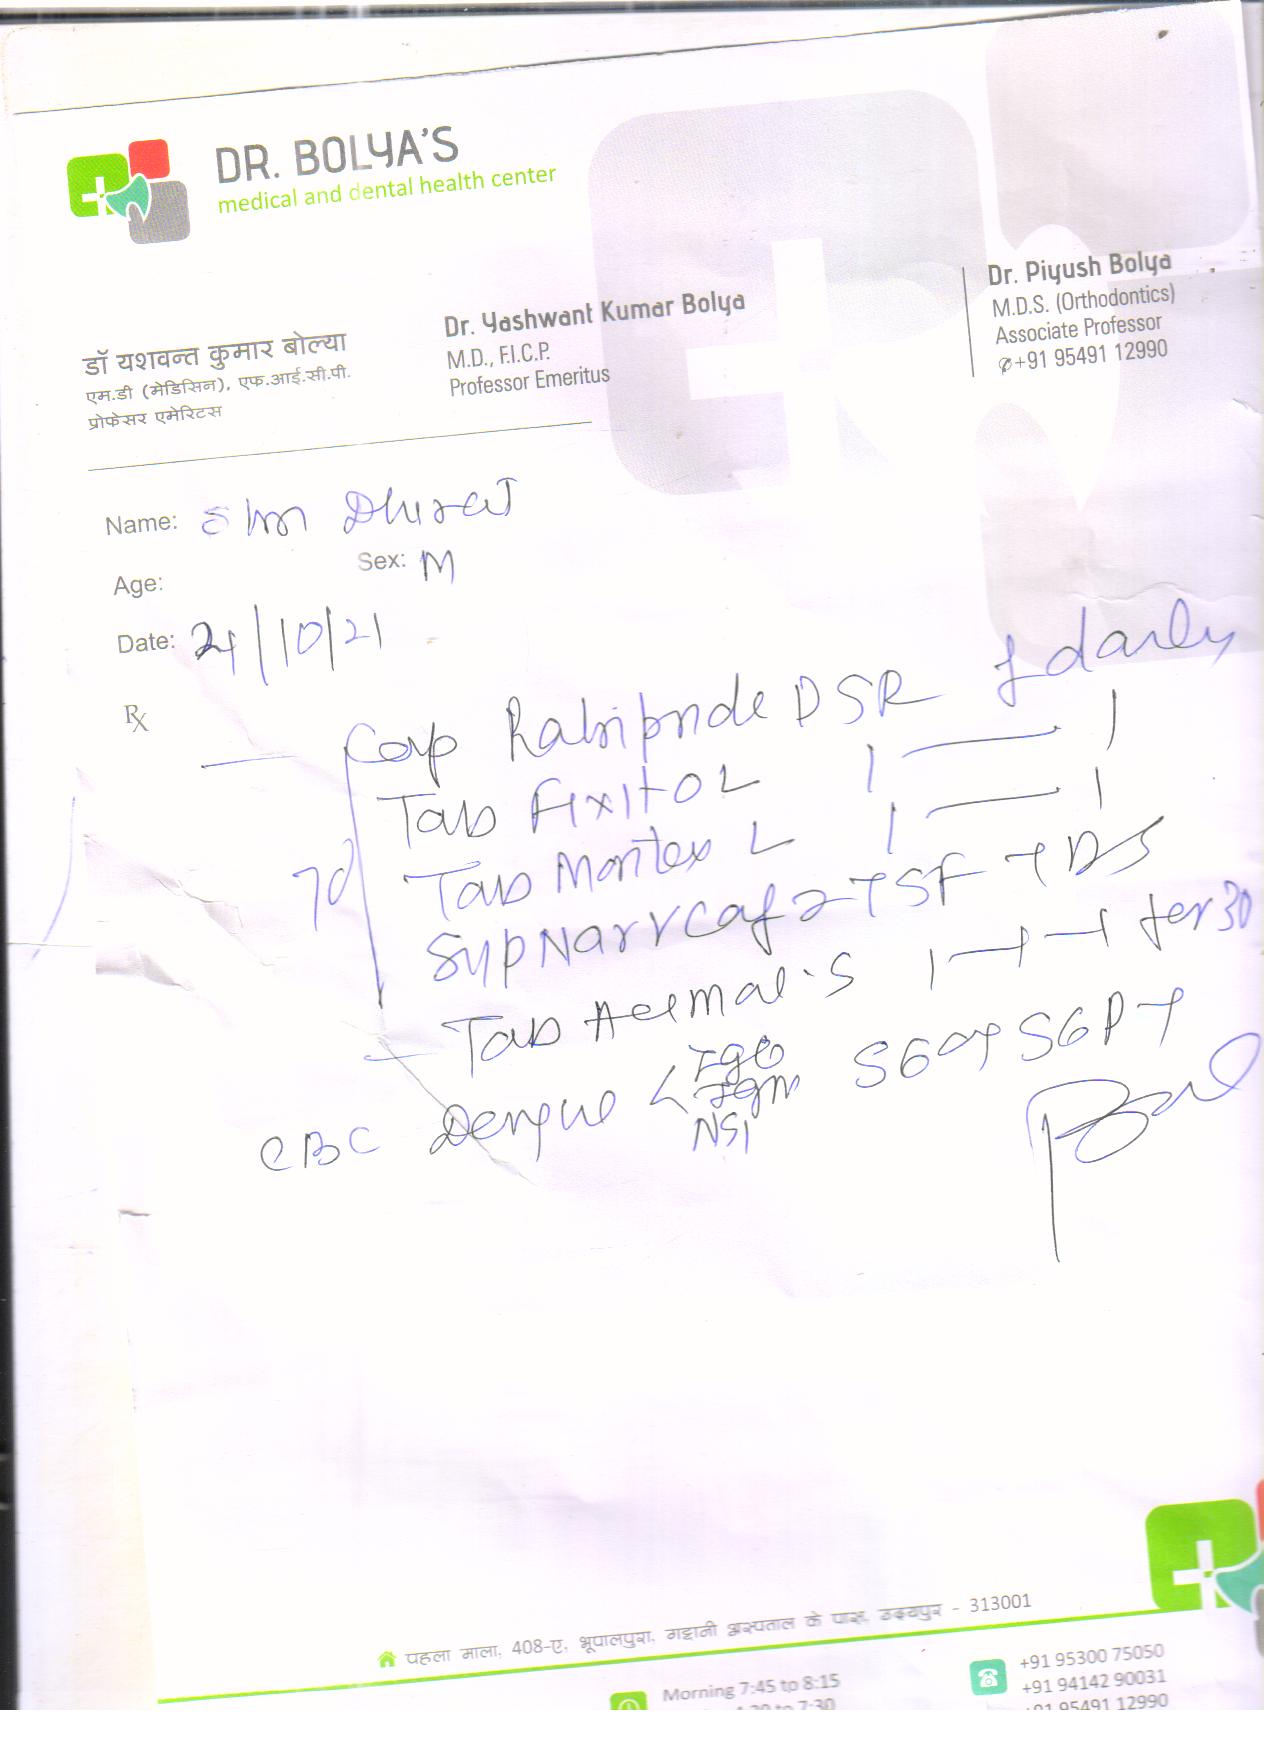 DR. BOLYA'S
medical and dental health center
डॉ यशवन्त कुमार बोल्या
एम.डी (मेडिसिन), एफ.आई.सी.पी.
प्रोफेसर एमेरिटस
Dr. Yashwant Kumar Bolya
M.D., F.I.C.P.
Professor Emeritus
Dr. Piyush Bolya
M.D.S. (Orthodontics)
Associate Professor
✆+91 95491 12990
Name: Dhiraj
Age:
Sex: M
Date: /10/21
Rx
Cap DSR 1 daily
Tab 1 — 1
Tab Montex L 1 — 1
7d
Syp 2 TSF TDS
Tab 1 — 1 — 1
CBC Dengue < IgG IgM NS1 SGOT SGPT
पहला माला, 408-ए, भूपालपुरा, गट्टानी अस्पताल के पास, उदयपुर - 313001
Morning 7:45 to 8:15
to 7:30
+91 95300 75050
+91 94142 90031
+91 95491 12990